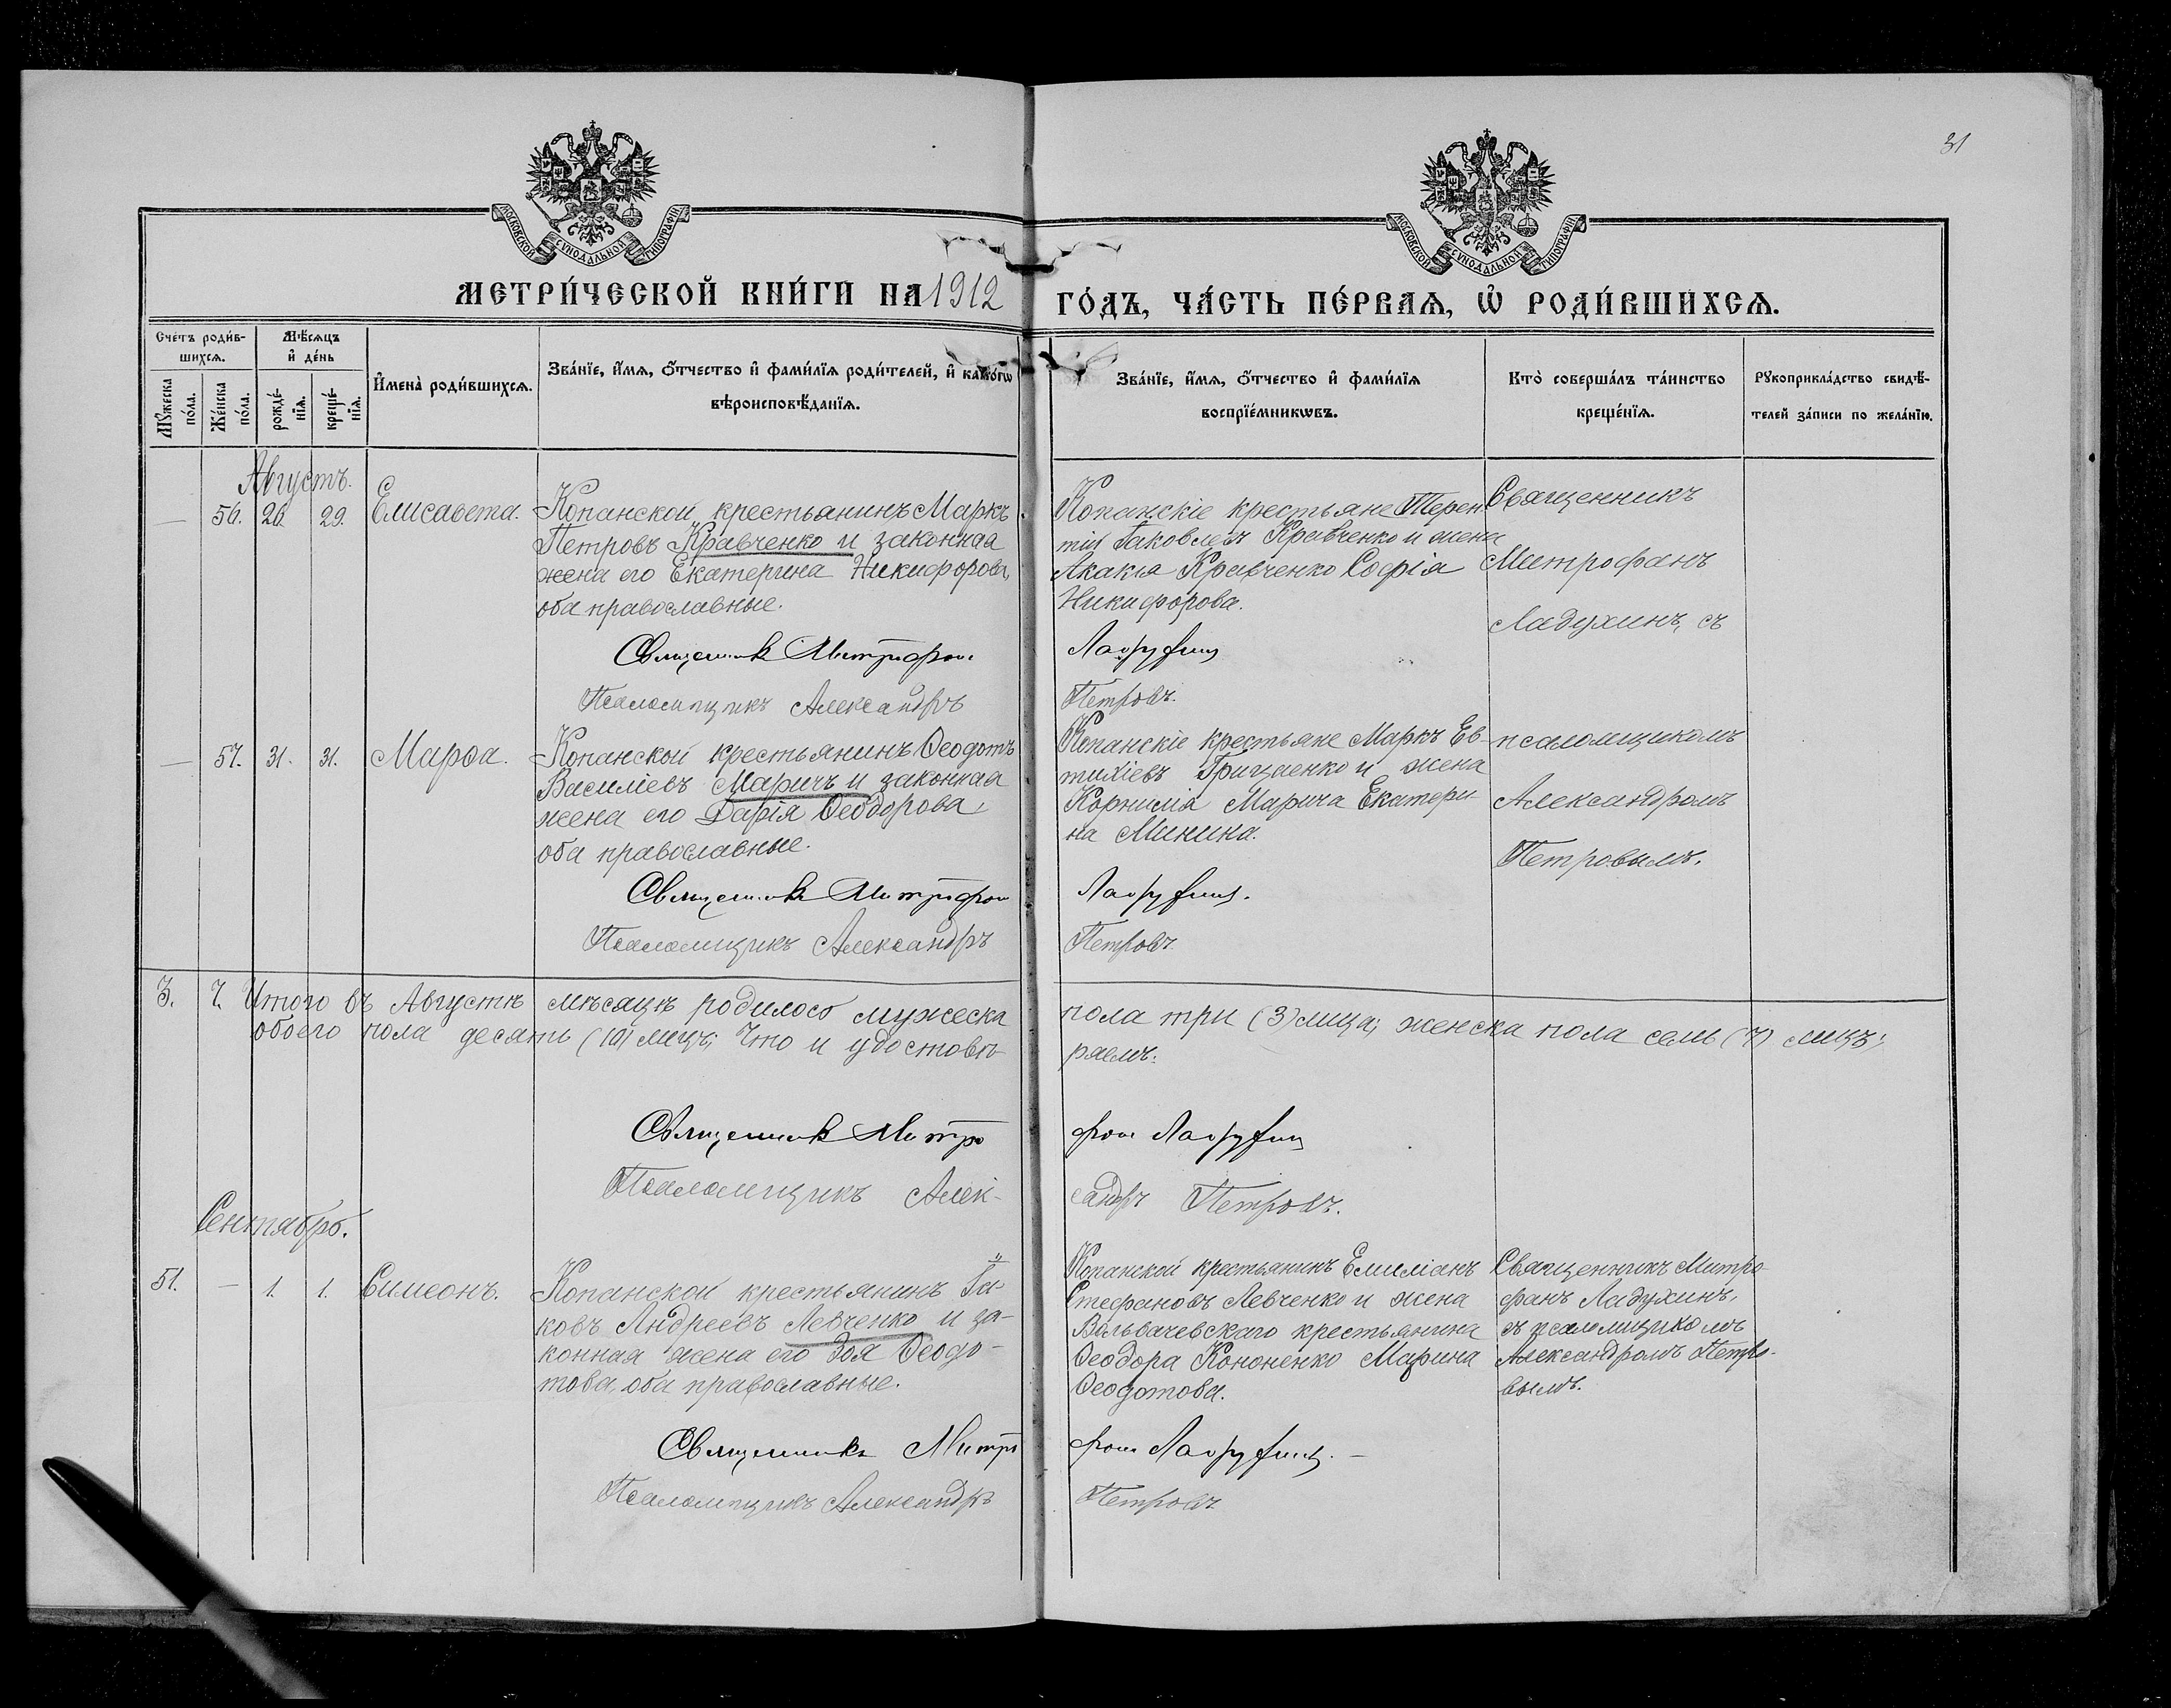 31
МОСКОВСКОЙ СУНОДАЛЬНОЙ ТИПОГРАФІИ
МОСКОВСКОЙ СУНОДАЛЬНОЙ ТИПОГРАФІИ
МЕТРИ́ЧЕСКОЙ КНИ́ГИ НА 1912 ГО́ДЪ, ЧА́СТЬ ПЕ́РВАѦ, Ѡ РОДИ́ВШИХСѦ.
Сче́тъ роди́в-
шихсѧ.
Мꙋ́жеска по́ла.
Же́нска по́ла.
Мѣ́сѧцъ
и де́нь
рожде́-
нїѧ.
креще́-
нїѧ.
И҆мена̀ роди́вшихсѧ.
Зва́нїе, и҆́мѧ, ѻ҆́тчество и҆ фами́лїѧ роди́телей, и҆ како́гѡ
вѣроисповѣ́данїѧ.
Зва́нїе, и҆́мѧ, ѻ҆́тчество и҆ фами́лїѧ
воспрїе́мникѡвъ.
Кто̀ соверша́лъ та́инство
креще́нїѧ.
Рꙋкоприкла́дство свидѣ́-
телей за́писи по жела́нїю.
Августъ.
— 56. 26 29. Елисавета.
Копанской крестьянинъ Маркъ
Петровъ Кравченко и законная
жена его Екатерина Никифорова,
оба православные.
Священникъ Митрофанъ
Псаломщикъ Александръ
Копанскіе крестьяне Терен-
тій Іаковлевъ Кравченко и жена
Акакія Кравченко Софія
Никифорова.
Ладухинъ
Петровъ.
Священникъ
Митрофанъ
Ладухинъ, съ
— 57. 31. 31. Марѳа.
Копанской крестьянинъ Ѳеодотъ
Василіевъ Маричъ и законная
жена его Дарія Ѳеодорова,
оба православные.
Священникъ Митрофанъ
Псаломщикъ Александръ
Копанскіе крестьяне Маркъ Ев-
тихіевъ Грицаенко и жена
Корнилія Марича Екатери-
на Минина.
Ладухинъ.
Петровъ
псаломщикомъ
Александромъ
Петровымъ.
3. 7. Итого въ Августѣ мѣсяцѣ родилось мужеска пола три (3) лица; женска пола семь (7) лицъ;
обоего пола десять (10) лицъ; Что и удостовѣ-ряемъ:
Священникъ Митрофанъ Ладухинъ
Псаломщикъ Александръ Петровъ.
Сентябрь.
51. — 1. 1. Симеонъ.
Копанской крестьянинъ Іа-
ковъ Андреевъ Левченко и за-
конная жена его Зоя Ѳеодо-
това, оба православные.
Священникъ Митро
Псаломщикъ Александръ
Копанской крестьянинъ Емиліанъ
Стефановъ Левченко и жена
Вольвачевскаго крестьянина
Ѳеодора Кононенко Марина
Ѳеодотова.
фанъ Ладухинъ. —
Петровъ
Священникъ Митро-
фанъ Ладухинъ,
съ псаломщикомъ
Александромъ Петро-
вымъ.